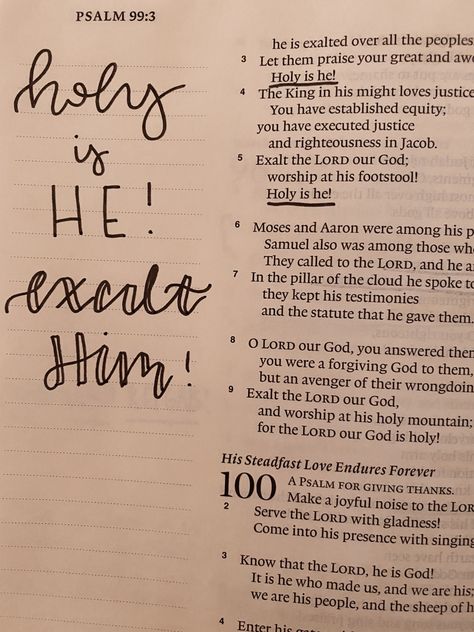 PSALM 99:3
holy
is
HE!
exalt
Him!
he is exalted over all the peoples
3 Let them praise your great and
Holy is he!
4 The King in his might loves justice
You have established equity;
you have executed justice
and righteousness in Jacob.
5 Exalt the LORD our God;
worship at his footstool!
Holy is he!
6 Moses and Aaron were among his
Samuel also was among those
They called to the LORD, and he
7 In the pillar of the cloud he spoke
they kept his testimonies
and the statute that he gave them.
8 O LORD our God, you answered
you were a forgiving God to them,
but an avenger of their
9 Exalt the LORD our God,
and worship at his holy mountain;
for the LORD our God is holy!
His Steadfast Love Endures Forever
100 A PSALM FOR GIVING THANKS.
Make a joyful noise to the
2 Serve the LORD with gladness!
Come into his presence with singing
3 Know that the LORD, he is God!
It is he who made us, and we are his;
we are his people, and the sheep of
4 Enter his